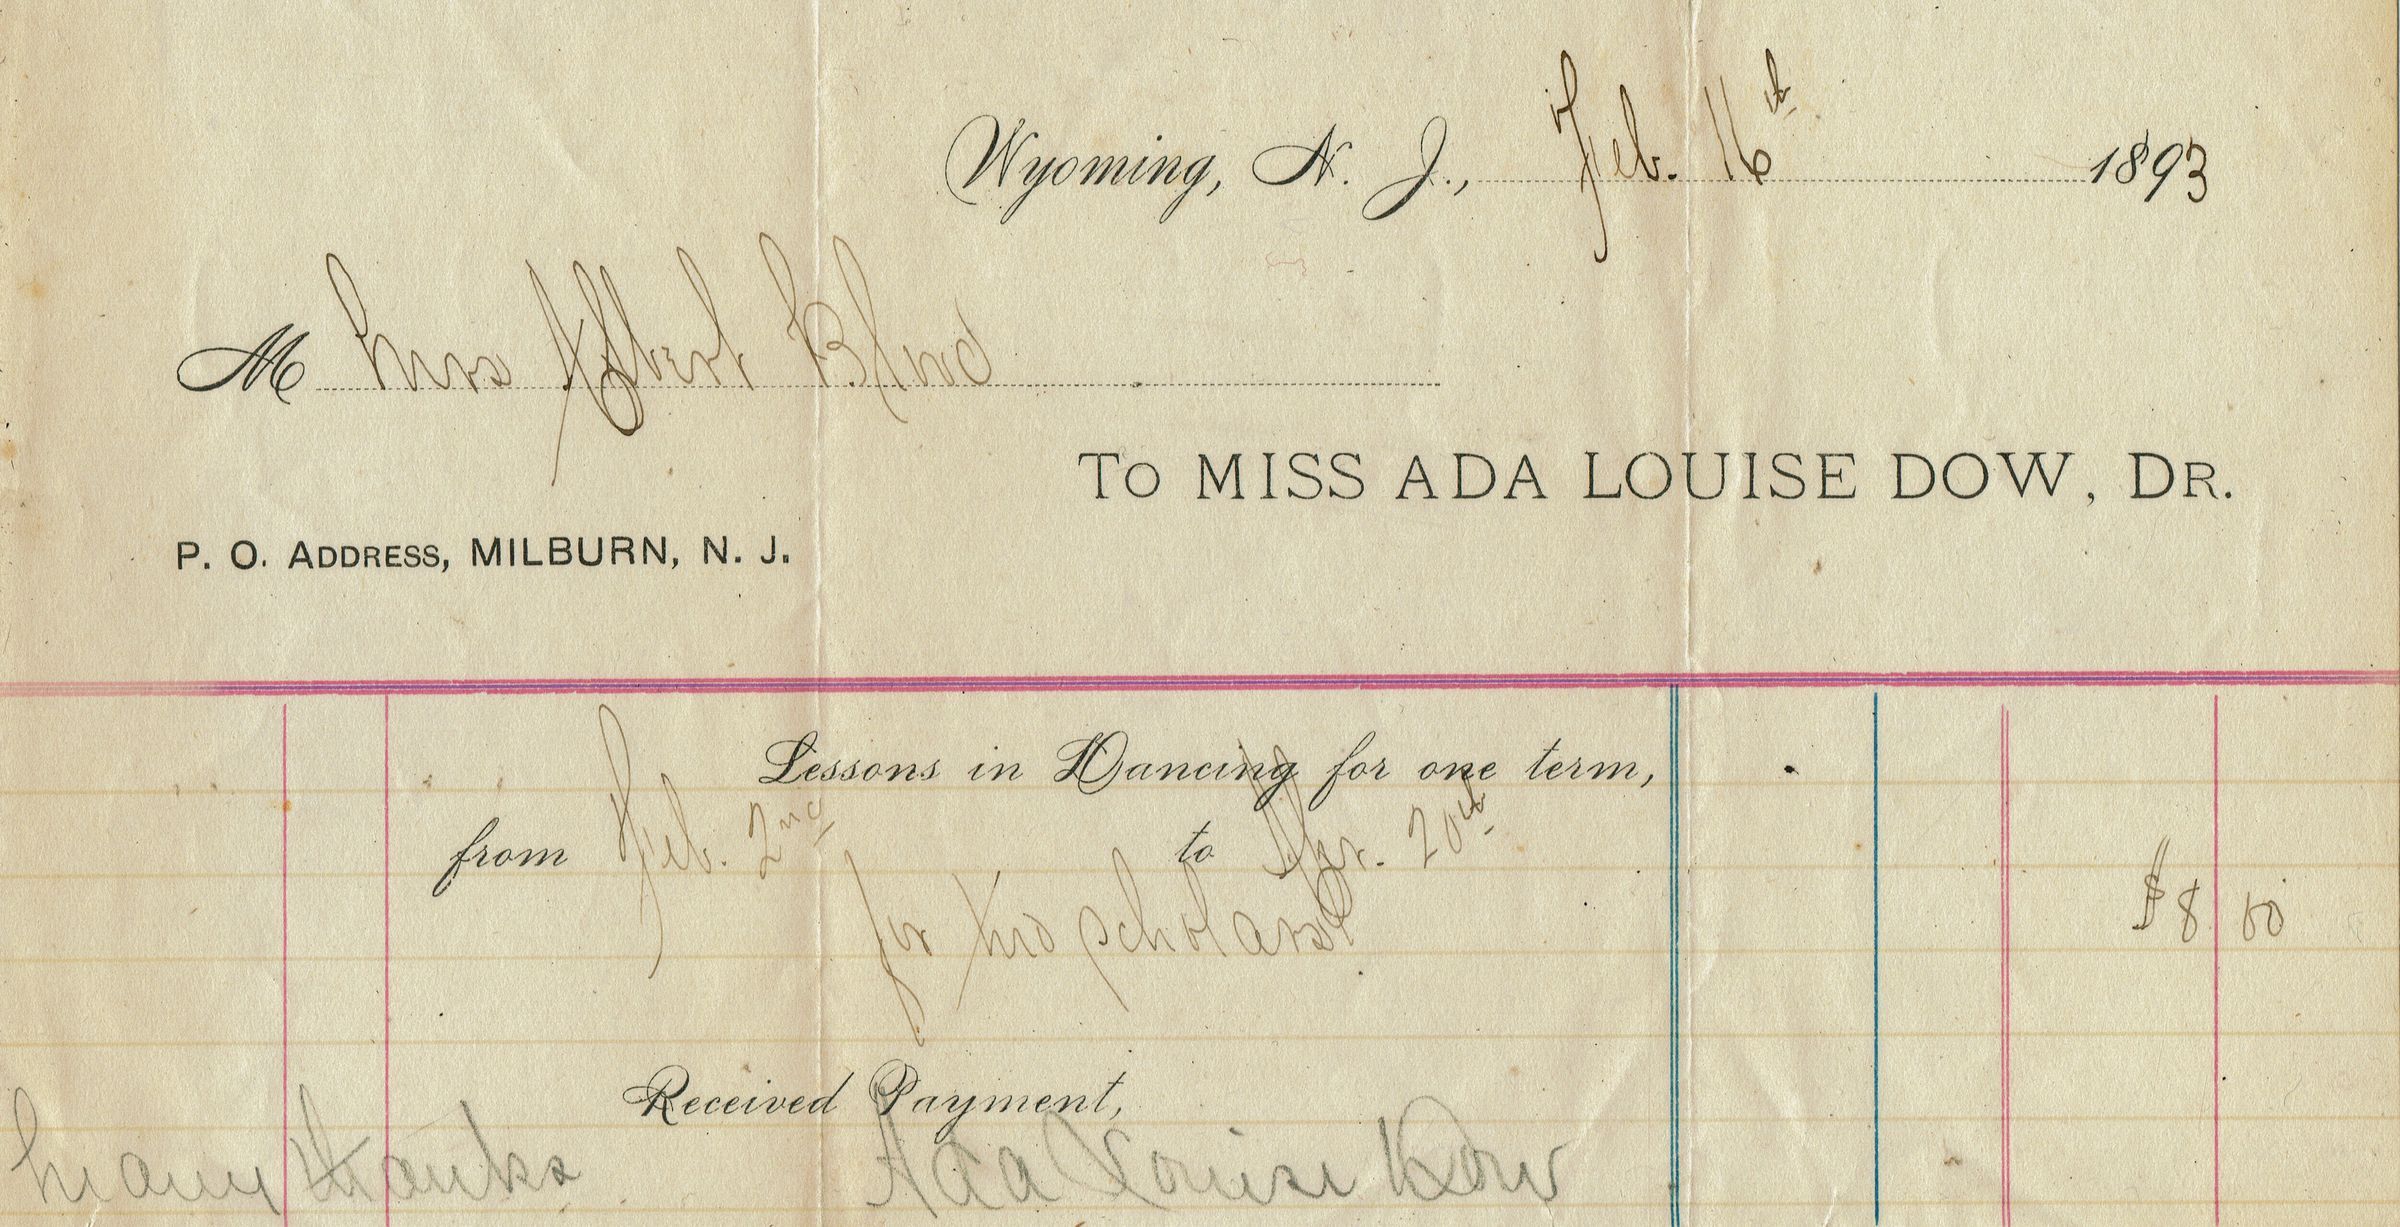 Wyoming, N. J., Feb. 16th 1893
M Mrs Albert
To MISS ADA LOUISE DOW, DR.
P. O. ADDRESS, MILBURN, N. J.
Lessons in Dancing for one term,
from Feb. 2nd to Apr. 20th
for two scholars
$8 00
Received Payment,
Many thanks Ada Louise Dow